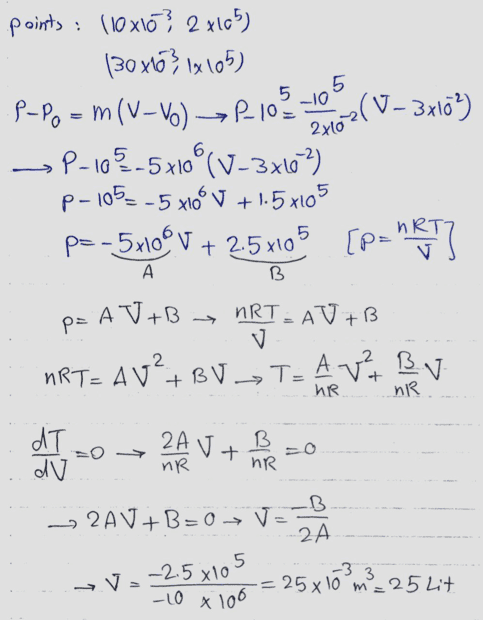 points : (10x10⁻³, 2x10⁵)
(30x10⁻³, 1x10⁵)
P-P₀ = m(V-V₀) → P-10⁵ = -10⁵/2x10⁻² (V-3x10⁻²)
→ P-10⁵ = -5x10⁶(V-3x10⁻²)
P-10⁵ = -5x10⁶V + 1.5x10⁵
P = -5x10⁶V + 2.5x10⁵ [P = nRT/V]
A B
P = AV+B → nRT/V = AV+B
nRT = AV² + BV → T = A/nR V² + B/nR V
dT/dV = 0 → 2A/nR V + B/nR = 0
→ 2AV+B=0 → V = -B/2A
→ V = -2.5x10⁵/-10x10⁶ = 25x10⁻³m³ = 25 Lit